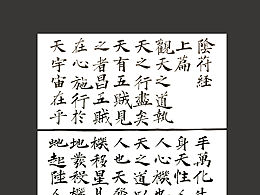 陰符経
上篇
觀天之道執
天之行盡矣
天有五賊見
之者昌五賊
在心施行於
天宇宙在乎
手萬化生
身天性人
人心機也
天之道以
人也天發
機移星
地發殺機
虵起陸人